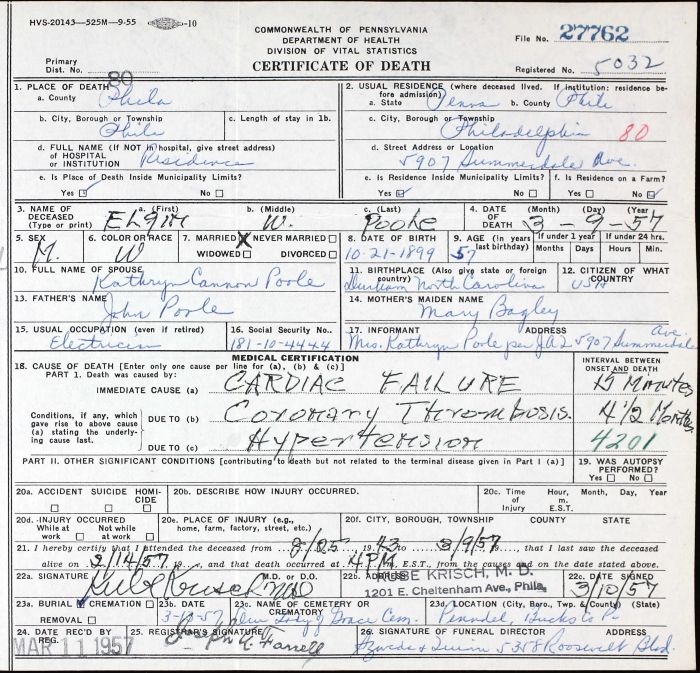 HVS-20143—525M—9-55 -10
COMMONWEALTH OF PENNSYLVANIA
DEPARTMENT OF HEALTH
DIVISION OF VITAL STATISTICS
CERTIFICATE OF DEATH
File No. 27762
Primary
Dist. No. 80
Registered No. 5032
1. PLACE OF DEATH
a. County Phila
2. USUAL RESIDENCE (where deceased lived. If institution: residence before admission)
a. State Penna b. County Phila
b. City, Borough or Township
Phila
c. Length of stay in 1b.
c. City, Borough or Township
Philadelphia 80
d. FULL NAME (If NOT in hospital, give street address)
OF HOSPITAL
OR INSTITUTION Residence
d. Street Address or Location
5907 Summerdale Ave.
e. Is Place of Death Inside Municipality Limits?
Yes No
e. Is Residence Inside Municipality Limits?
Yes No
f. Is Residence on a Farm?
Yes No
3. NAME OF
DECEASED
(Type or print)
a. (First) b. (Middle) c. (Last)
Elgin W. Poole
4. DATE OF DEATH (Month) (Day) (Year)
3-9-57
5. SEX
M.
6. COLOR OR RACE
W
7. MARRIED X NEVER MARRIED
WIDOWED DIVORCED
8. DATE OF BIRTH
10-21-1899
9. AGE (in years last birthday)
57
If under 1 year
Months Days
If under 24 hrs.
Hours Min.
10. FULL NAME OF SPOUSE
Kathryn Cannon Poole
11. BIRTHPLACE (Also give state or foreign country)
Durham North Carolina
12. CITIZEN OF WHAT COUNTRY
USA
13. FATHER'S NAME
John Poole
14. MOTHER'S MAIDEN NAME
Mary Bagley
15. USUAL OCCUPATION (even if retired)
Electrician
16. Social Security No.
181-10-4444
17. INFORMANT ADDRESS
Mrs. Kathryn Poole per 5907 Summerdale Ave
MEDICAL CERTIFICATION
18. CAUSE OF DEATH [Enter only one cause per line for (a), (b) & (c)]
PART 1. Death was caused by:
INTERVAL BETWEEN
ONSET AND DEATH
IMMEDIATE CAUSE (a) CARDIAC FAILURE 15 Minutes
Conditions, if any, which
gave rise to above cause
(a) stating the underlying
cause last.
DUE TO (b) Coronary Thrombosis. 4 1/2 Months
DUE TO (c) Hypertension 4201
PART II. OTHER SIGNIFICANT CONDITIONS [contributing to death but not related to the terminal disease given in Part I (a)]
19. WAS AUTOPSY PERFORMED?
Yes No
20a. ACCIDENT SUICIDE HOMICIDE
20b. DESCRIBE HOW INJURY OCCURRED.
20c. Time of Injury Hour, m. E.S.T. Month, Day, Year
20d. INJURY OCCURRED
While at work Not while at work
20e. PLACE OF INJURY (e.g., home, farm, factory, street, etc.)
20f. CITY, BOROUGH, TOWNSHIP COUNTY STATE
21. I hereby certify that I attended the deceased from 8/25 1943 to 3/9/57, that I last saw the deceased
alive on 2/14/57, and that death occurred at 4PM, E.S.T., from the causes and on the date stated above.
22a. SIGNATURE M.D. or D.O.
Rube Krisch MD
22b. ADDRESS
RUBE KRISCH, M. D.
1201 E. Cheltenham Ave., Phila.
22c. DATE SIGNED
3/10/57
23a. BURIAL CREMATION
REMOVAL
23b. DATE
23c. NAME OF CEMETERY or CREMATORY
Our Lady of Grace Cem.
23d. LOCATION (City, Boro, Twp. & County) (State)
Penndel, Bucks Co Pa
24. DATE REC'D BY REG.
MAR 11 1957
25. REGISTRAR'S SIGNATURE
Joseph A. Farrell
26. SIGNATURE OF FUNERAL DIRECTOR ADDRESS
5358 Roosevelt Blvd.